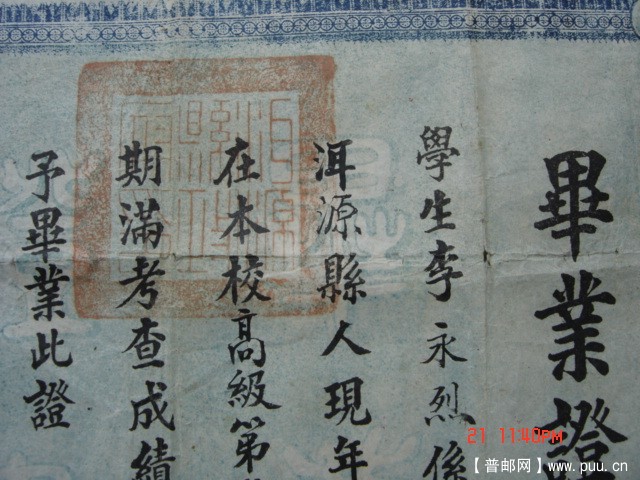 畢業證
學生李永烈係
洱源縣人現年
在本校高級第
期滿考查成績
予畢業此證
21 11:40PM
【普邮网】www.puu.cn